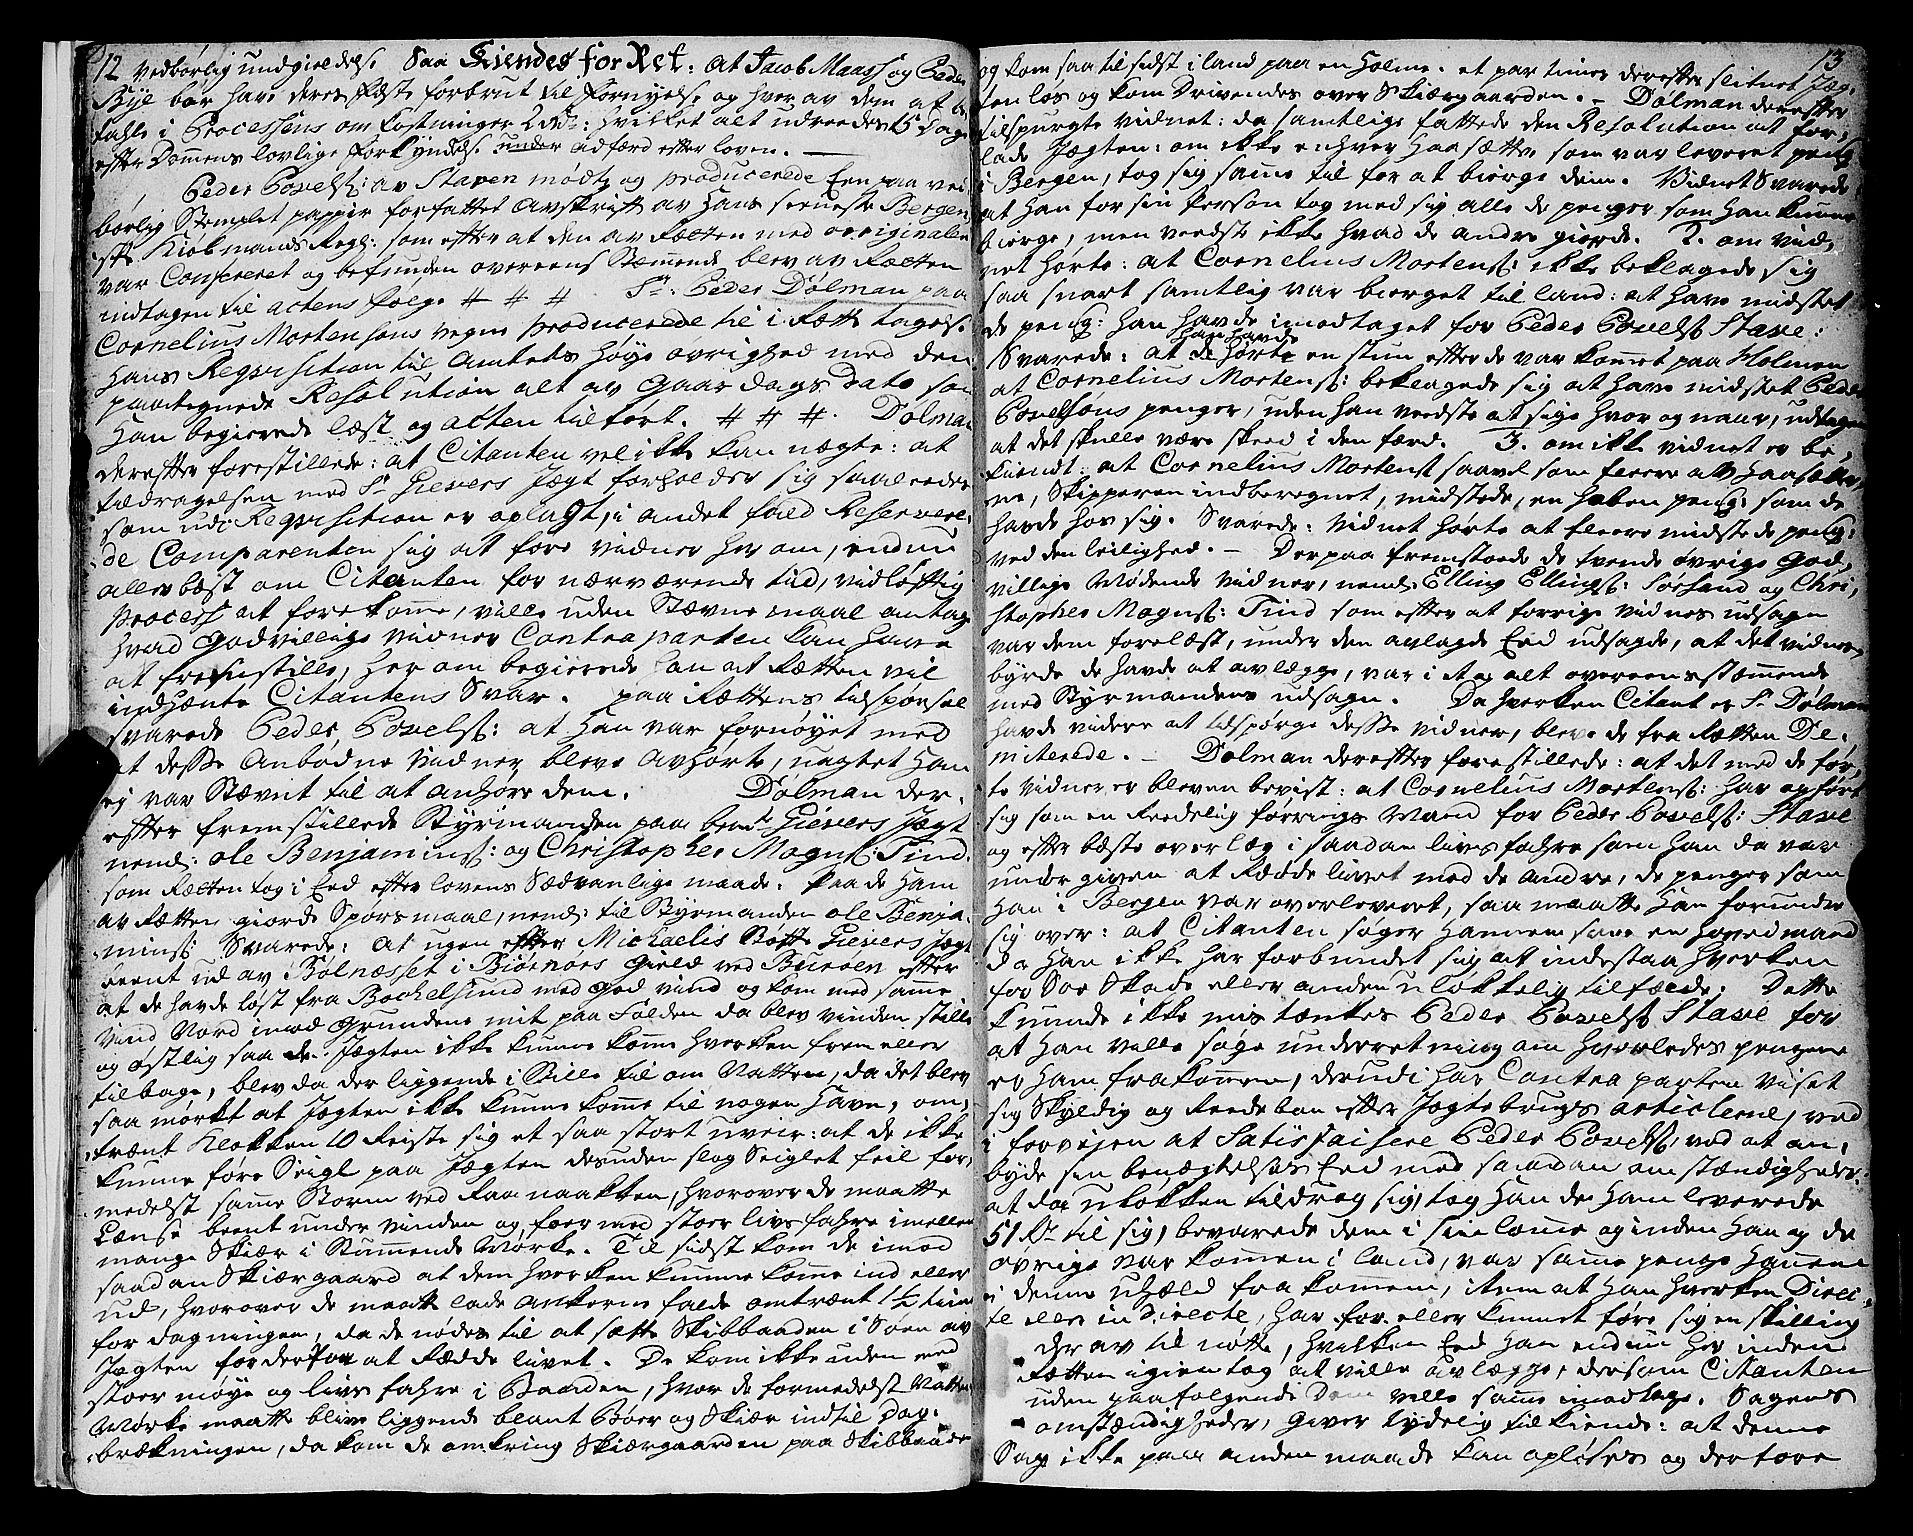 12 vedbørlig undgieldelse. Saa Kiendes for Ret: at Jacob Maass og Peder
Bye bør have deres Fæste forbrut til Fornyelse og hver av dem at be-
talle i Processens omkostninger 2 rdr: hvilket alt udreedes 15 Dage
efter Dommens lovlige Forkyndelse under adfærd efter loven.
Peder Povels: av Staven mødte og producerede Een paa ved-
børlig Stemplet pappiir forfattet Avskrift av hans seeneste Bergen-
ske Kiøbmands Regn: som efter at den av Rætten med originalen
var Confereret og befunden overeens Stæmmende blev av Rætten
indtagen til actens følge # # # Sr. Peder Dølman paa
Cornelius Mortensøns vegne producerede til i Rætte tagelse
hans Reqvisition til Amtets høye øvrighed med den
paategnede Resolution alt av Gaars dags Dato som
han begierede læst og acten tilført. # # #. Dølman
derefter forestillede: at Citanten vel ikke kan nægte: at
tildragelsen med Sr. Gievers Jægt forholder sig saaledes
som udi Reqvisition er oplagt, i andet fald Reservere-
de Comparenten sig at føre vidner her om, endnu
allerbæst om Citanten for nærværende tiid, vidløftig
Process at forekomme, ville uden Stævnemaal antage
hvad godvillige vidner Contraparten kan have
at fremstille, her om begierede han at Rætten vil
indhænte Citantens Svar. paa Rættens tilspørsel
svarede Peder Povels: at han var fornøyet med
at disse Anbødne vidner bleve avhørte, uagtet han
ej var Stævnt til at anhøre dem. Dølman der-
efter fremstillede Styrmanden paa bemte Gievers Jægt
nemlig: ole Benjamins: og Christopher Magnus: Tind
som Rætten tog i Eed efter lovens Sædvanlige maade. Paa de ham
av Rætten giorde Spørsmaal, nemlig: til Styrmanden ole Benja-
mins: Svarede: at ugen efter Michaelis Støtte Gievers Jægt
beent ud av Bølnæsset i Biørnørs Gield ved Buroen efter
at de havde løst fra Bochelsund med god vind og kom med samme
vind Nord imod Grundene mit paa Folden da blev vinden stille
og østlig saa at Jægten ikke kunne komme hverken frem eller
tilbage, blev da der liggende i Stille til om Natten, da det blev
saa mørkt at Jægten ikke kunne komme til nogen Havn, om-
trent Klokken 10 Reiste sig et saa stort uveir: at de ikke
kunne føre Seigl paa Jægten desuden slog Seiglet feil for-
medelst samme Storm ved Raa naakken, hvorover de maatte
Lænse beent under vinden og foer med stoer livs fahre imellem
mange Skiær i Stummende Mørke. Til sidst kom de imod
saadan Skiærgaard at dem hverken kunne komme ind eller
ud, hvorover de maatte lade ankeren falde omtrent 1½ time
for dagningen, da de nødes til at sætte Skibbaaden i Søen av
Jægten for derfor at Rædde livet. De kom ikke uden med
stoer møye og livs fahre i Baaden, hvor de formedelst Natte
Mørke maatte blive liggende blant Bøer og Skiær indtil Dag-
brækningen, da kom de omkring Skiærgaarden paa Skibbaade
13
og kom saa til sidst i land paa en Holme. et par timer derefter slitnet Jæg-
ten løs og kom Drivendes over Skiærgaarden. – Dølman derefter
tilspurgte vidnet: da samtlige fattede den Resolution at for-
lade Jægten: om ikke enhver Haasætte, som var leveret penge
i Bergen, tog sig samme til for at bierge dem. Vidnet Svarede
at han for sin Person tog med sig alle de penger som han kunne
bierge, men veedste ikke hvad de andre giorde. 2. om vid-
net hørte: at Cornelius Mortens: ikke beklagede sig
saa snart samtlig var bierget til land: at have mistet
de peng: han havde imodtaget for Peder Povels: Stave:
Svarede: at de hørte en stun efter de var kommet paa Holmen
han havde
at Cornelius Mortens: beklagede sig at have midstet Peder
Povelsøns penger, uden han veedste at sige hvor og naar, udtagen
at det skulle være skeed i den færd. 3. om ikke vidnet er be-
kiendt: at Cornelius Mortens: saavel som fleere av Haasætter-
ne, Skipperen indberegnet, midstede, en hoben peng: som de
havde hos sig. Svarede: vidnet hørte at fleere midstede peng:
ved den leilighed. – Derpaa fremstoede de tvende øvrige God-
villige Mødende vidner, nemlig: Elling Ellings: Sørsand og Chri-
stopher Magnus: Tind som efter at forrige vidnes udsagn
var dem forelæst, under den avlagde Eed udsagde, at det vidnes-
byrde de havde at avlægge, var i et og alt overeensstæmmende
med Styrmandens udsagn. Da hverken Citant er Sr. Dølman
havde videre at tilspørge disse vidner, bleve de fra Rætten De-
miterede. – Dølman derefter forestillede: at det med de før-
te vidner er bleven bevist: at Cornelius Mortens: har opført
sig som en Reedelig førrings Mand for Peder Povels: Stave
og efter bæste overlæg i saadan livsfahre som han da var
undergiven at Rædde livet med de Andre, de penger som
han i Bergen var overleveret, saa maatte han forundre
sig over: at Citanten søger hannem som en hovedmand
da han ikke har forbundet sig at indestaa hverken
for Søe Skade eller anden uløkkelig tilfælde. Dette
kunde ikke mistænkes Peder Povels: Stave for
at han ville søge underretning om hvorledes pengene
er ham frakommen, derudi har Contraparten viiset
sig Skyldig og Reedebon efter Jægtebrugs articlerne, ved
i forvejen at Satisfaisere Peder Povels: ved at an-
byde sin benægtelses Eed med saadan omstændigheder:
at da uløkken tildrog sig, tog han de ham leverede
51 Rdr til sig, bevarede dem i sin lomme og inden han og de
øvrige var kommen i land, var samme penge hannem
i denne uhæld frakommen, item at han hverken Direc-
te eller indirecte, har for eller kunnet føre sig en skilling
der av til nøtte, hvilken Eed han endnu her inden
Rætten igientog at ville avlægge, dersom Citanten
uden paafølgende Dom ville samme imodtage. Sagens
omstændigheder, Giver tydelig tilkiende: at denne
Sag ikke paa anden maade kan opløses og derfore